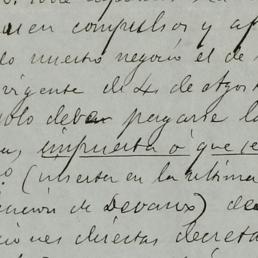 en compulsos y
do nuestro negocio el de
vigente de 4 de Agost
solo deben pagarse l
impuesta ó que se
(inserta en la última
de Devaux) de
iones directas decreta